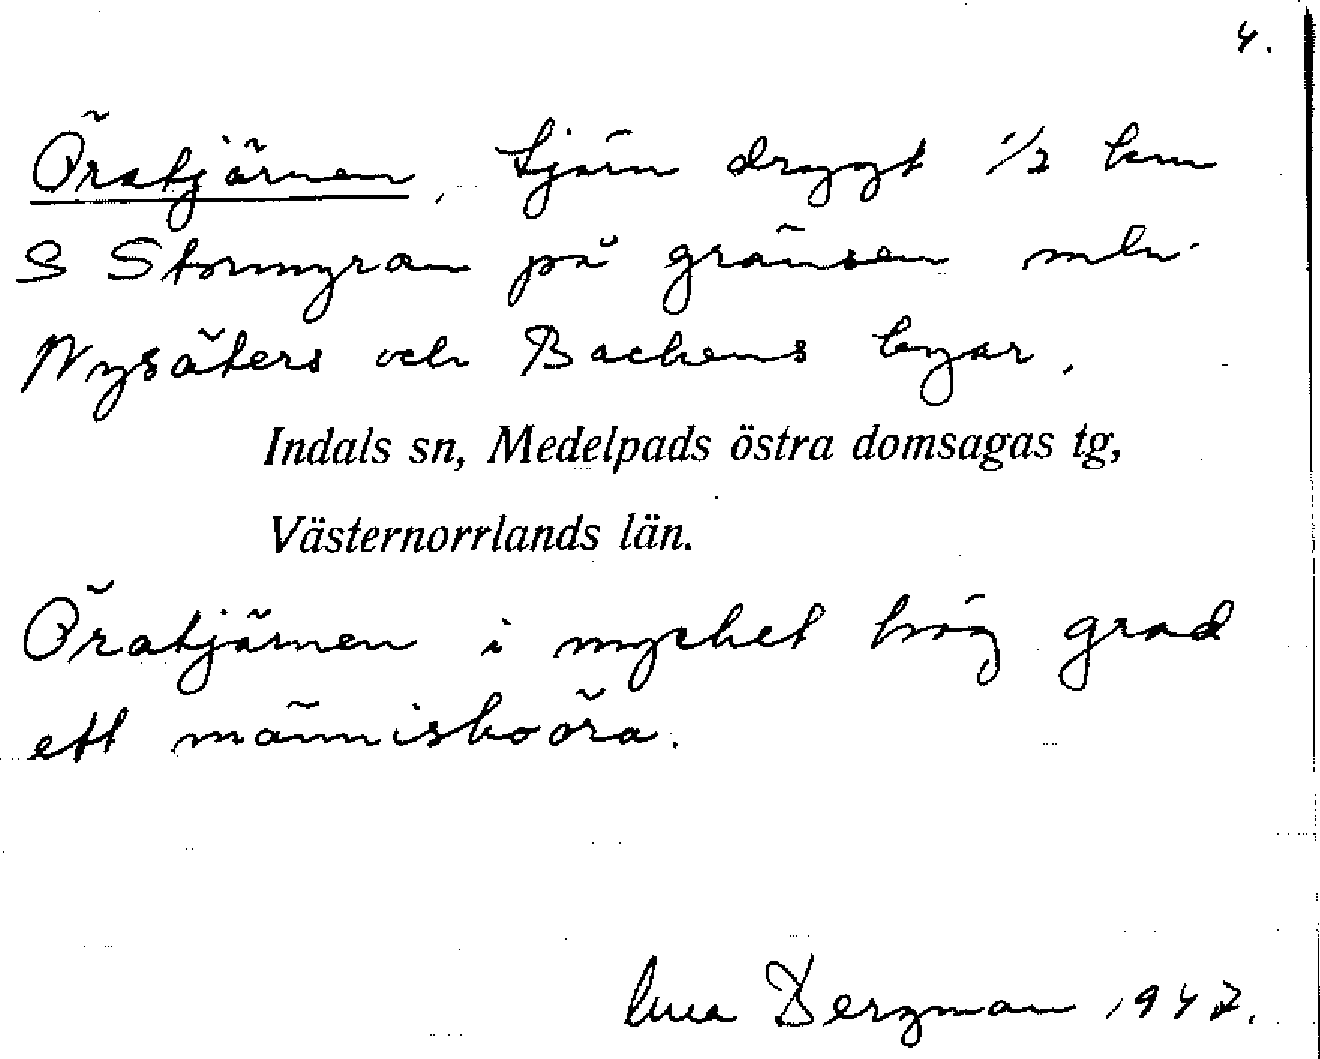 4.
Öratjärnen, tjärn drygt 1/2 km
S Stormyran på gränsen mln
Nysäters och Backens byar.
Indals sn, Medelpads östra domsagas tg,
Västernorrlands län.
Öratjärnen i mycket hög grad
ett människoöra.
Bergman 1947.